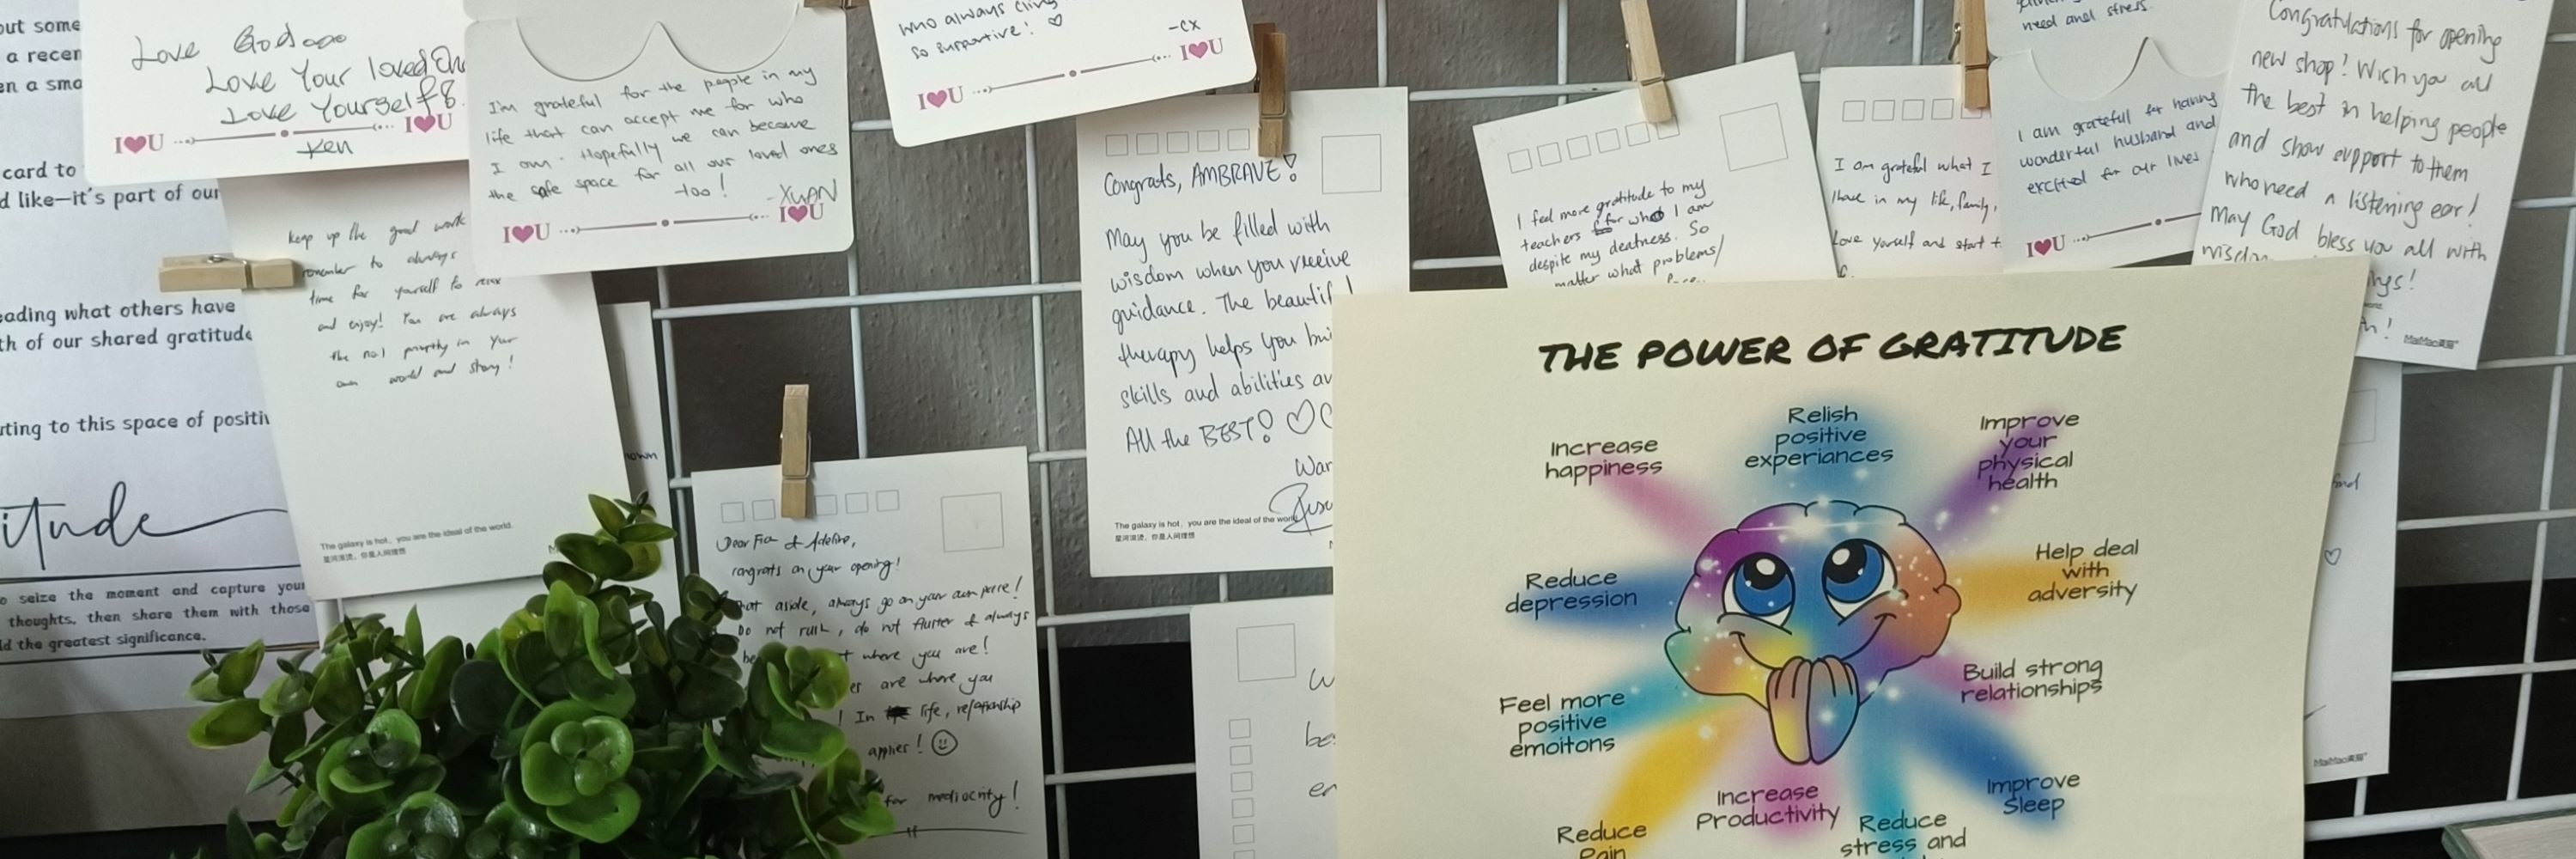 out some
a recen
en a sma
card to
d like—it's part of our
eading what others have
th of our shared gratitude
ting to this space of positiv
itude
o seize the moment and capture your
thoughts, then share them with those
ld the greatest significance.
Love God
Love Your loved
Love Yourself
I❤U I❤U
Ken
keep up the good work
remember to always
time for yourself to relax
and enjoy! You are always
the no.1 priority in your
own world and story!
The galaxy is hot，you are the ideal of the world.
星河滚烫，你是人间理想
I'm grateful for the people in my
life that can accept me for who
I am. Hopefully we can become
the safe space for all our loved ones
too!
-XUAN
I❤U I❤U
nown
who always cling
so supportive! ♡
-cx
I❤U I❤U
Dear Fia & Adeline,
congrats on your opening!
at aside, always go on your own pace!
Do not rush, do not fluster & always
be
t where you are!
er are where you
! In life, relationship
applies! ☺
for mediocrity!
Congrats, AMBRAVE!
May you be filled with
wisdom when you receive
guidance. The beautif
therapy helps you bui
skills and abilities
All the BEST! ♡
War
The galaxy is hot，you are the ideal of the world.
星河滚烫，你是人间理想
W
be
en
I feel more gratitude to my
teachers for who I am
despite my deafness. So
matter what problems/
I am grateful what I
have in my life, family,
Love yourself and start t
need and stress.
I am grateful for having
wonderful husband and
excited for our lives
I❤U
Congratulations for opening
new shop! Wish you all
the best in helping people
and show support to them
who need a listening ear!
May God bless you all with
wisdom
ngs!
h!
MaiMao
THE POWER OF GRATITUDE
Increase
happiness
Relish
positive
experiances
Improve
your
physical
health
Reduce
depression
Help deal
with
adversity
Feel more
positive
emoitons
Build strong
relationships
Reduce
Pain
Increase
Productivity
Reduce
stress and
Improve
Sleep
and
♡
MaiMao